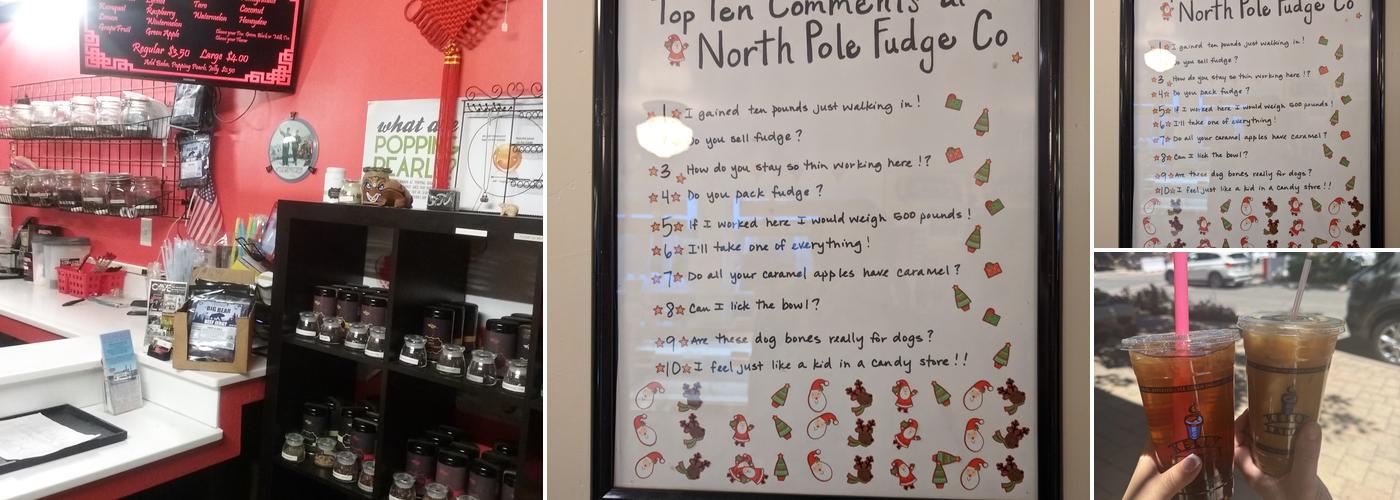 Kumquat
Lemon
Grapefruit
Raspberry
Wintermelon
Green Apple
Taro
Watermelon
Coconut
Honeydew
Regular $3.50 Large $4.00
Add Boba, Popping Pearls, Jelly $0.50
what are
POPPING
PEARL
BIG BEAR
Top Ten Comments at
North Pole Fudge Co
1 I gained ten pounds just walking in!
Do you sell fudge?
3 How do you stay so thin working here!?
4 Do you pack fudge?
5 If I worked here I would weigh 500 pounds!
6 I'll take one of everything!
7 Do all your caramel apples have caramel?
8 Can I lick the bowl?
9 Are these dog bones really for dogs?
10 I feel just like a kid in a candy store!!
North Pole Fudge Co
1 I gained ten pounds just walking in!
Do you sell fudge?
3 How do you stay so thin working here!?
4 Do you pack fudge?
5 If I worked here I would weigh 500 pounds!
6 I'll take one of everything!
7 Do all your caramel apples have caramel?
8 Can I lick the bowl?
9 Are these dog bones really for dogs?
10 I feel just like a kid in a candy store!!